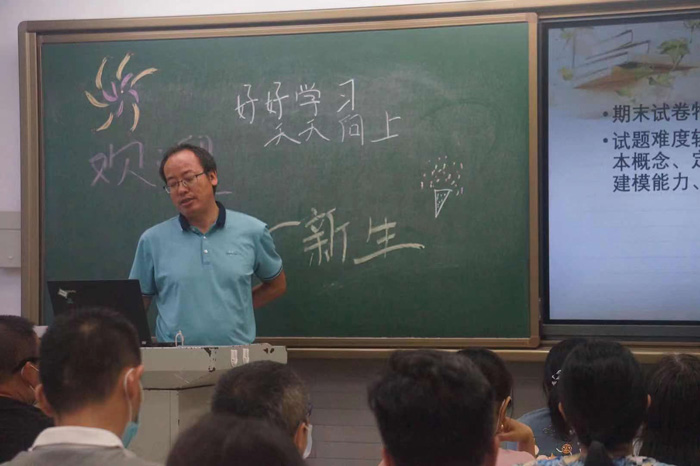 好好学习
天天向上
欢迎
一新生
•期末试卷
•试题难度
本概念、
建模能力、